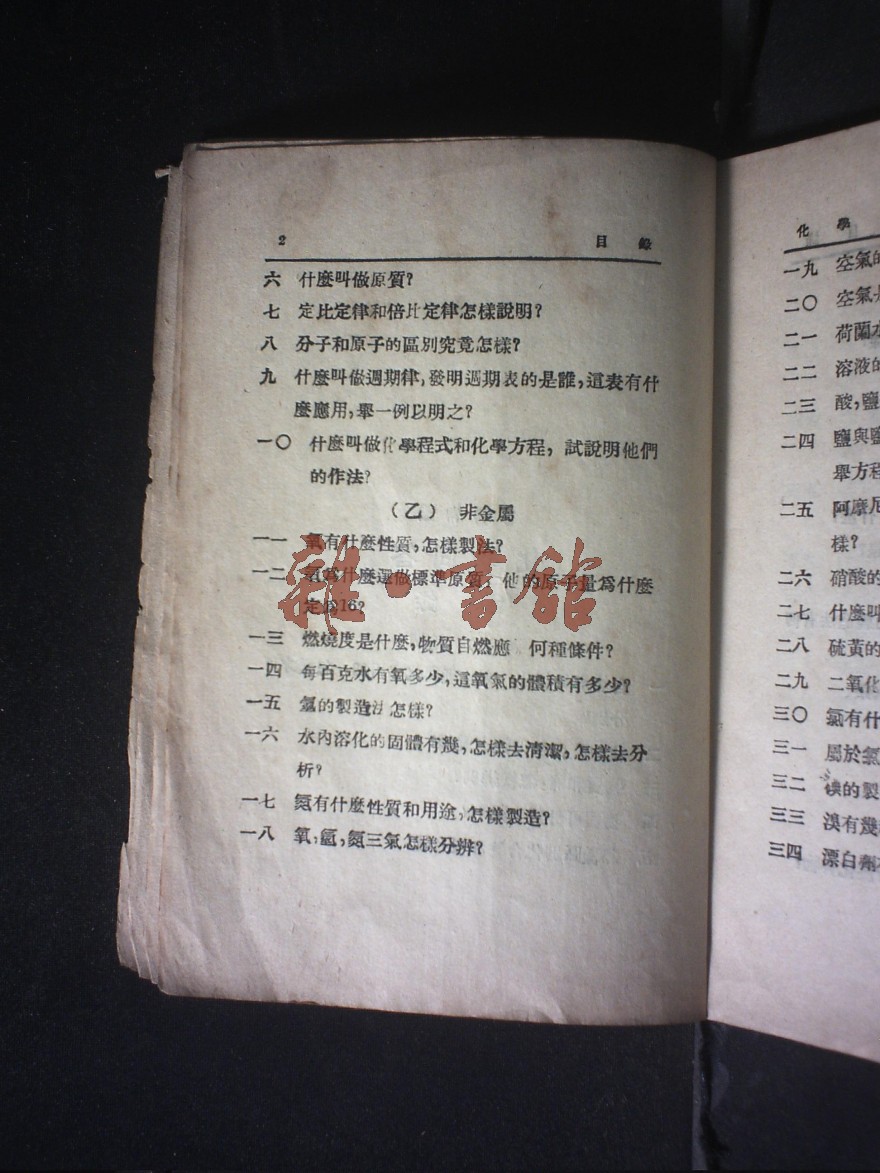 2 目錄
六 什麼叫做原質?
七 定比定律和倍比定律怎樣說明?
八 分子和原子的區別究竟怎樣?
九 什麼叫做週期律,發明週期表的是誰,這表有什
麼應用,舉一例以明之?
一〇 什麼叫做化學程式和化學方程,試說明他們
的作法?
(乙) 非金屬
一一 氧有什麼性質,怎樣製法?
一二 氧爲什麼選做標準原質,他的原子量爲什麼
定爲16?
一三 燃燒度是什麼,物質自燃應 何種條件?
一四 每百克水有氧多少,這氧氣的體積有多少?
一五 氫的製造法怎樣?
一六 水內溶化的固體有幾,怎樣去清潔,怎樣去分
析?
一七 氮有什麼性質和用途,怎樣製造?
一八 氧,氫,氮三氣怎樣分辨?
雜·書館
化學
一九 空氣的
二〇 空氣
二一 荷蘭水
二二 溶液的
二三 酸,鹽
二四 鹽與
舉方程
二五 阿摩尼
樣?
二六 硝酸的
二七 什麼叫
二八 硫黃的
二九 二氧化
三〇 氯有什
三一 屬於氯
三二 碘的製
三三 溴有幾
三四 漂白